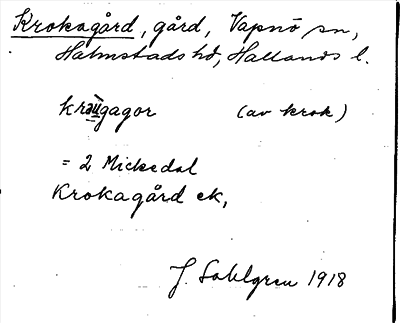 Krokagård, gård, Vapnö sn,
Halmstads hd, Hallands l.
kraugagor (av krok)
= 2 Mickedal
Krokagård ek,
J. Sahlgren 1918